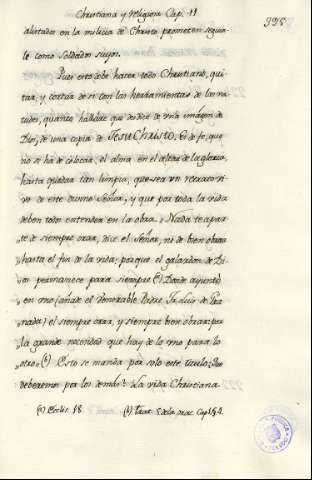 Christiana y religiosa Cap. 11
398.
alistados en la milicia de Christo prometen seguir
le como Soldados suyos.
Pues esto debe hacer todo Christiano, qui
tar, y cortar de si con las herramientas de las vir
tudes, quanto hallare que desdice de una imagen de
Dios, de una copia de JesuChristo. Es de fe, que
no se ha de colocar el alma en el altar de la gloria,
hasta quedar tan limpia, que sea un retrato vi
vo de este divino Señor; y que por toda la vida
deben todos entender en la obra. Nada te apar
te de siempre orar, dice el Señor, ni de bien obrar
hasta el fin de la vida; porque el galardon de Di
os permanece para siempre (a) Donde ayuntó
en uno (añade el Venerable Padre Fr. Luis de Gra
nada) el siempre orar, y siempre bien obrar: por
la grande necesidad que hay de lo uno para lo
otro (b) Esto se manda por solo este titulo: Que
deberemos por los demás? La vida Christiana
(a) Eccli. 18. (b) Trat. de la orac. Cap.